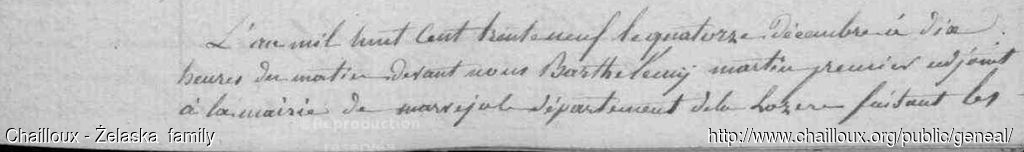 L'an mil huit Cent trente neuf le quatorze Décembre à dix
heures du matin devant nous Barthelemij martin premier adjoint
à la mairie de marvejols département dela Lozere faisant les
Reproduction
réservée
Chailloux - Żelaska family
http://www.chailloux.org/public/geneal/